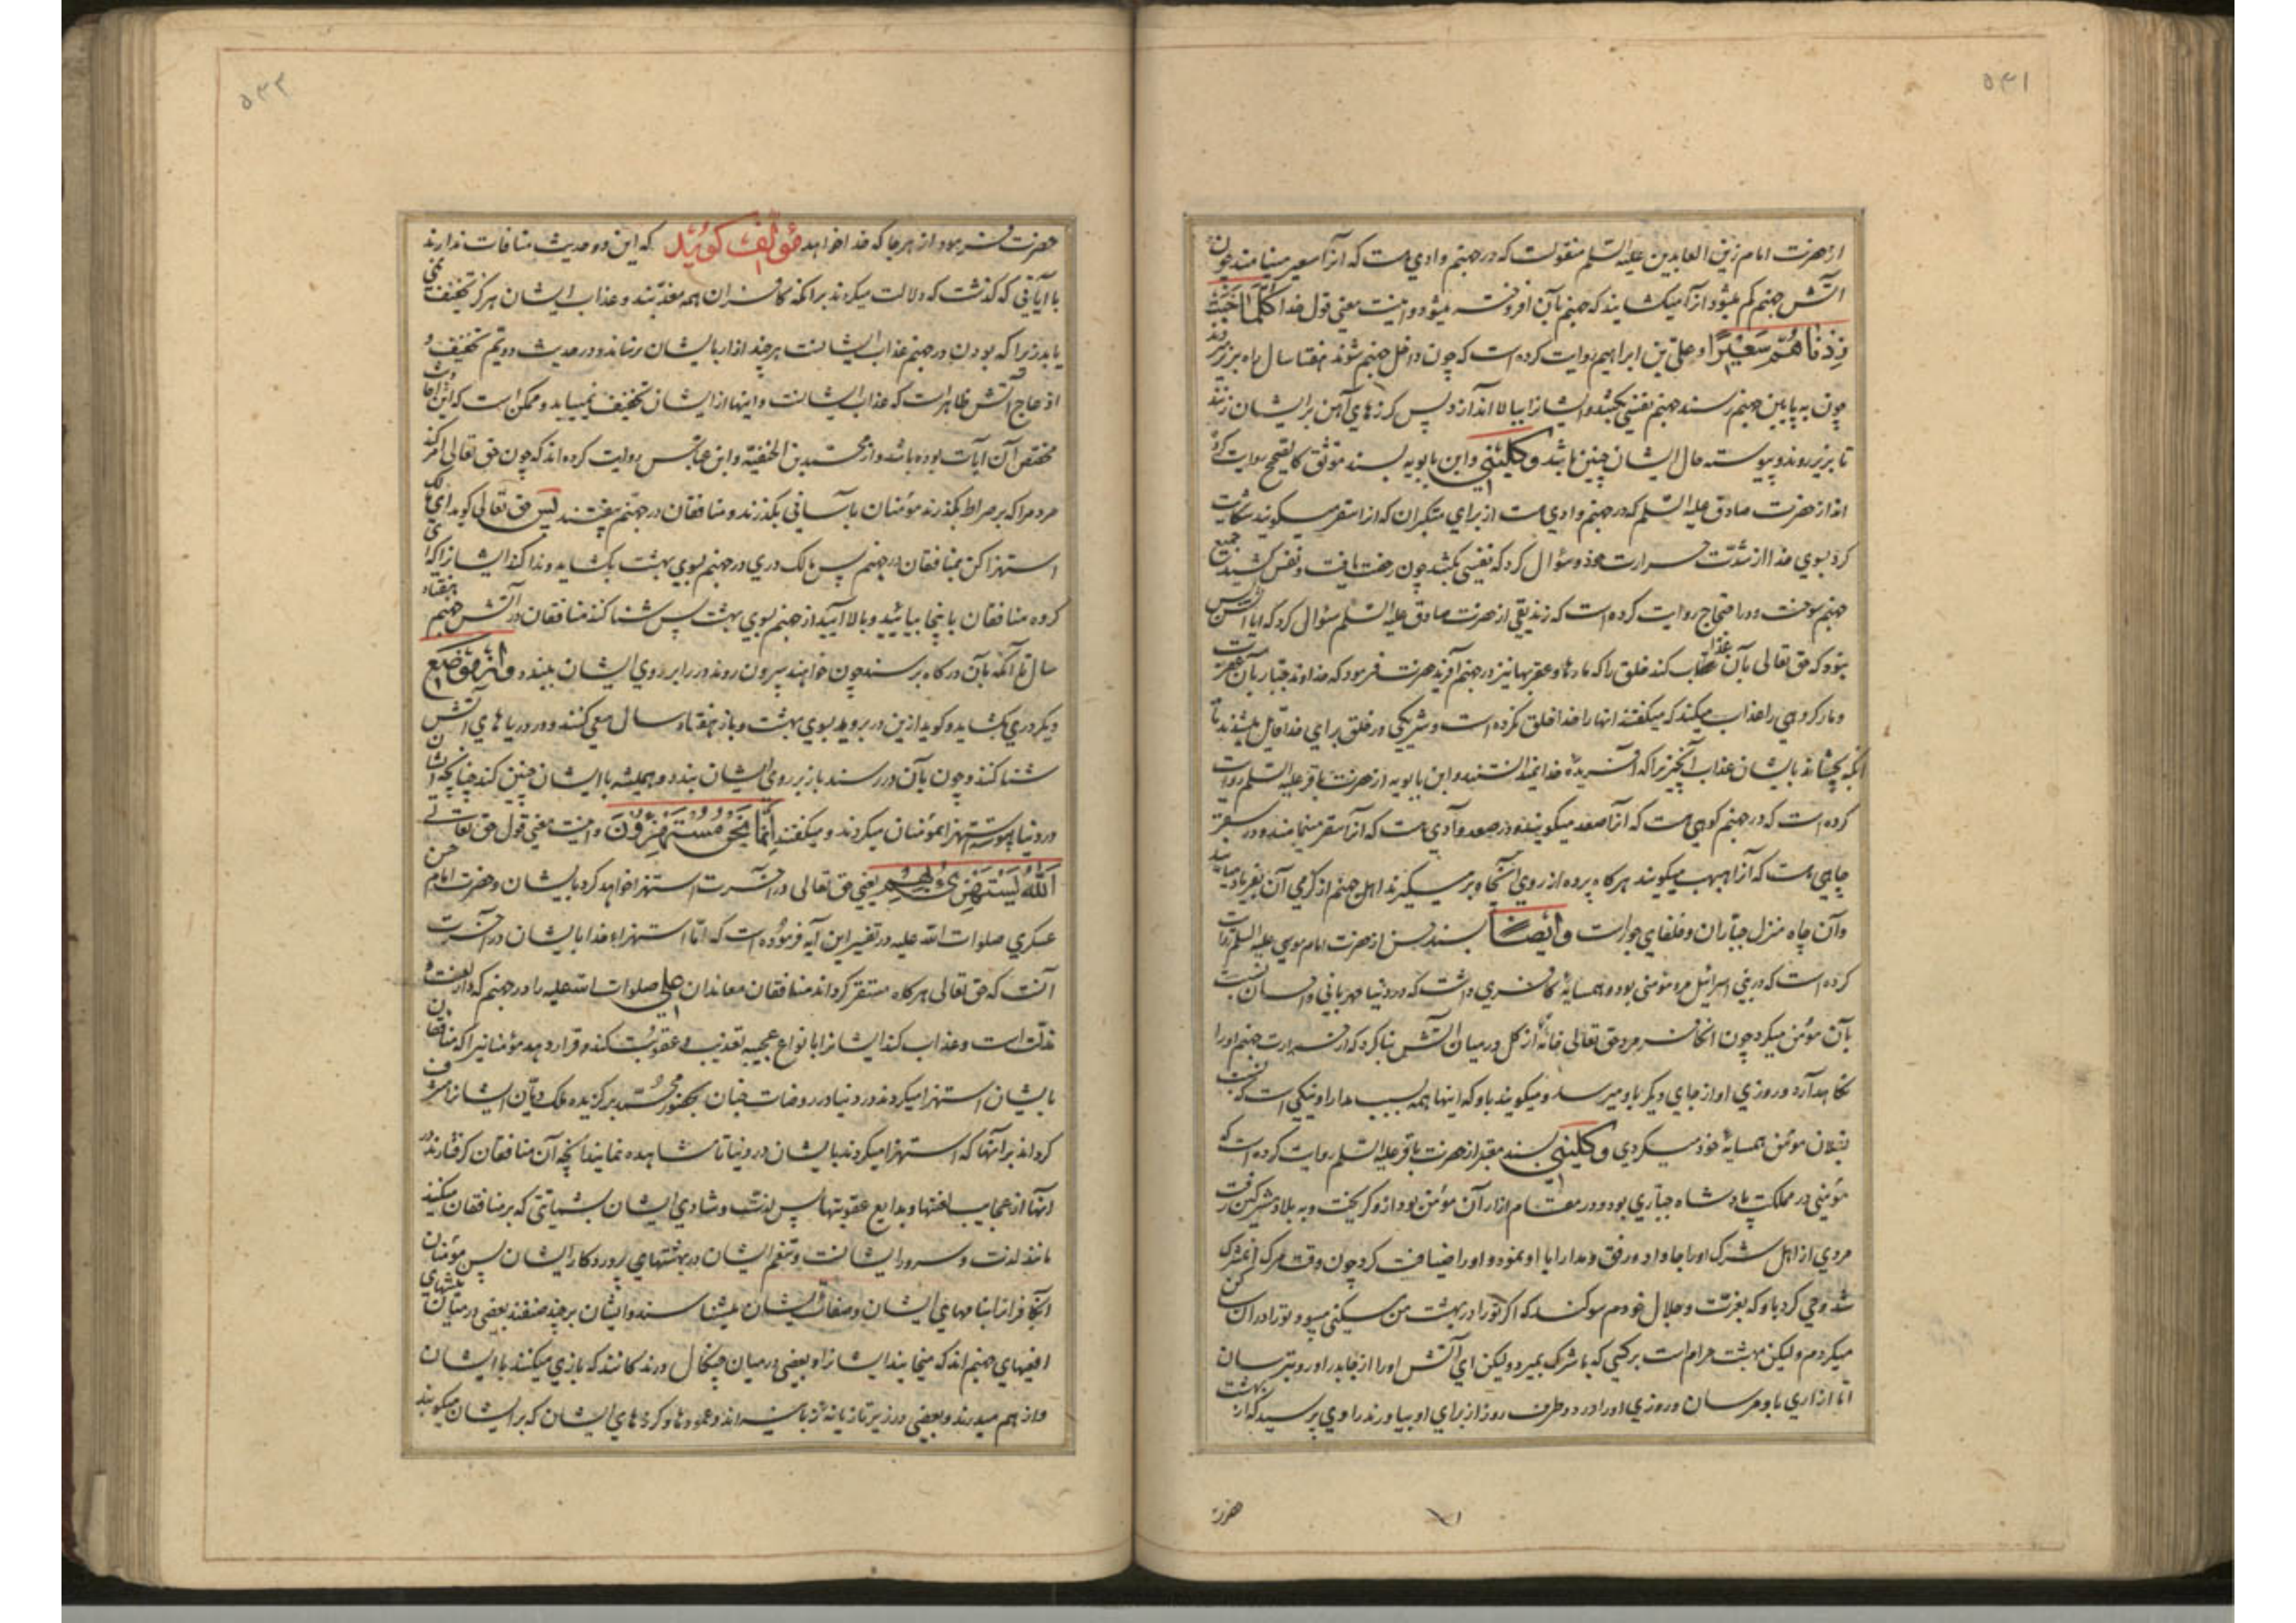 ۵۴۱
از حضرت امام زین العابدین علیه السلم منقولست که در جهنم وادي هست که آنرا سعیر مینامند چون
آتش جهنم کم میشود از آن میکشایند که جهنم بآن افروخته میشود و اینست معنی قول خدا کُلَّمَا خَبَتْ
زِدْنَاهُمْ سَعِیْرًا و علی بن ابراهیم روایت کرده است که چون داخل جهنم شوند هفتاد سال راه بزیر روند
چون به پایین جهنم رسند جهنم نفسی بکشد و ایشانرا ببالا اندازد پس کرزهاي آهن بر ایشان زنند
تا بزیر روند و پیوسته حال ایشان چنین باشد و کلینی و ابن بابویه بسند موثق کالصحیح روایت کرده
اند از حضرت صادق علیه السلم که در جهنم وادي هست از براي متکبران که آنرا سقر میکویند شکایت
کرد بسوي خدا از شدت حرارت خود و سؤال کرد که نفسی بکشد چون رخصت یافت و نفس کشید جمیع
جهنم سوخت و در احتجاج روایت کرده است که زندیقی از حضرت صادق علیه السلم سؤال کرد که ایا آتش بس
نبود که حق تعالی بآن عذاب کند خلق را که مارها و عقربها نیز در جهنم آفرید حضرت فرمود که خداوند جبار بآن عقرب
و مار کروهی را عذاب میکند که میکفتند انها را خدا خلق نکرده است و شریکی در خلق براي خدا قایل میشدند تا
انکه بچشاند بایشان عذاب آنچیز را که آفریده خدا نمیدانستند و ابن بابویه از حضرت باقر علیه السلم روایت
کرده است که در جهنم کوهی هست که آنرا صعد میکویند و در صعد وادي هست که آنرا سقر مینامند و در سقر
چاهی هست که آنرا هبهب میکویند هرکاه پرده از روي آنچاه بر میکیرند اهل جهنم از کرمی آن بفریاد میایند
وآن چاه منزل جباران و خلفاي جورست و ایضًا بسند حسن از حضرت امام موسی علیه السلم روایت
کرده است که در بنی اسرائیل مرد مؤمنی بود و همسایه کافري داشت که در دنیا مهربانی و احسان نسبت
بآن مؤمن میکرد چون انکافر مرد حق تعالی خانه از کل در میان آتش بنا کرد که از حرارت جهنم اورا
نکاهدارد و روزي او از جاي دیکر باو میرسد و میکویند باو که اینها همه بسبب مدارا و نیکی است که نسبت
بفلان مومن همسایه خود میکردي و کلینی بسند معتبر از حضرت باقر علیه السلم روایت کرده است که
مؤمنی در مملکت پادشاه جباري بود و در مقام ازار آن مؤمن بود ازو کریخت و به بلاد مشرکین رفت
مردي از اهل شرک اورا جا داد و رفق و مدارا با او نمود و اورا ضیافت کرد چون وقت مرک انمشرک
شد وحی کرد باو که بعزت و جلال خودم سوکند که اکر تورا در بهشت من مسکنی میبود تورا در ان ساکن
میکردم و لیکن بهشت حرام است بر کسی که با شرک بمیرد و لیکن اي آتش اورا از جا بدر اور و بترسان
اما ازاري باو مرسان و روزي اورا در دو طرف روز از براي او بیاورند راوي پرسید که از بهشت
حضرت
۵۴۲
حضرت فرمود از هر جا که خدا خواهد مؤلف کوید که این دو حدیث منافات ندارند
با آیاتی که کذشت که دلالت میکردند برانکه کافران همه معذبند و عذاب ایشان هرکز تخفیف نمی
یابد زیرا که بودن در جهنم عذاب ایشانست هر چند ازار بایشان نرساند و در حدیث دویم تخفیف و
ازعاج آتش ظاهرست که عذاب ایشانست و اینها از ایشان تخفیف نمییابد و ممکن است که این احادیث
مخصّص آن آیات بوده باشد و از محمد بن الحنفیّه و ابن عباس روایت کرده اند که چون حق تعالی امر کند
مردم را که بر صراط بکذرند مؤمنان بآسانی بکذرند و منافقان در جهنم بیفتند پس حق تعالی کوید اي مالک
استهزا کن بمنافقان در جهنم پس مالک دري در جهنم بسوي بهشت بکشاید و ندا کند ایشانرا که اي
کروه منافقان باینجا بیائید و بالا آیید از جهنم بسوي بهشت پس شنا کنند منافقان در آتش جهنم هفتاد
سال تا آنکه بآن درکاه برسند چون خواهند بیرون روند در را بر روي ایشان ببندد و از موضع
دیکر دري بکشاید و کوید ازین در بروید بسوي بهشت و باز هفتاد سال سعی کنند و در دریاهاي آتش
شنا کنند و چون بآن در رسند باز بر روي ایشان ببندد و همیشه با ایشان چنین کند چنانچه ایشان
در دنیا پیوسته استهزا بمؤمنان میکردند و میکفتند اِنَّمَا نَحْنُ مُسْتَهْزِؤُنَ و اینست معنی قول حق تعالی
اَللّٰهُ یَسْتَهْزِئُ بِهِمْ یعنی حق تعالی در آخرت استهزا خواهد کرد بایشان و حضرت امام حسن
عسکري صلوات الله علیه در تفسیر این آیه فرموده است که امّا استهزاء خدا بایشان در آخرت
آنست که حق تعالی هرکاه مستقر کرداند منافقان معاندان علی صلوات الله علیه را در جهنم که دار لعنت و
مذلّت است و عذاب کند ایشانرا بانواع عجیبه تعذیب و عقوبت کند و قرار دهد مؤمنانیرا که منافقان
بایشان استهزا میکردند در دنیا در روضات جنان بحضور محمّد برکزیده ملک دیّان ایشانرا مشرف
کرداند بر آنها که استهزا میکردند بایشان در دنیا تا مشاهده نمایند آنچه آن منافقان کرفتارند در
انها از عجایب لعنتها و بدایع عقوبتها پس لذت و شادي ایشان بشماتتی که بر منافقان میکنند
مانند لذت و سرور ایشانست و تنعم ایشان در بهشتهاي پروردکار ایشان پس مؤمنان
انکافرانرا بنامهاي ایشان و صفات ایشان میشناسند و ایشان بر چند صنفند بعضی در میان نیشهاي
افعیهاي جهنم اند که میخایند ایشانرا و بعضی در میان چنکال درندکانند که بازي میکنند با ایشان
و از هم میدرند و بعضی در زیر تازیانه زبانیه اند و عمودها و کرزهاي ایشان که بر ایشان میکوبند